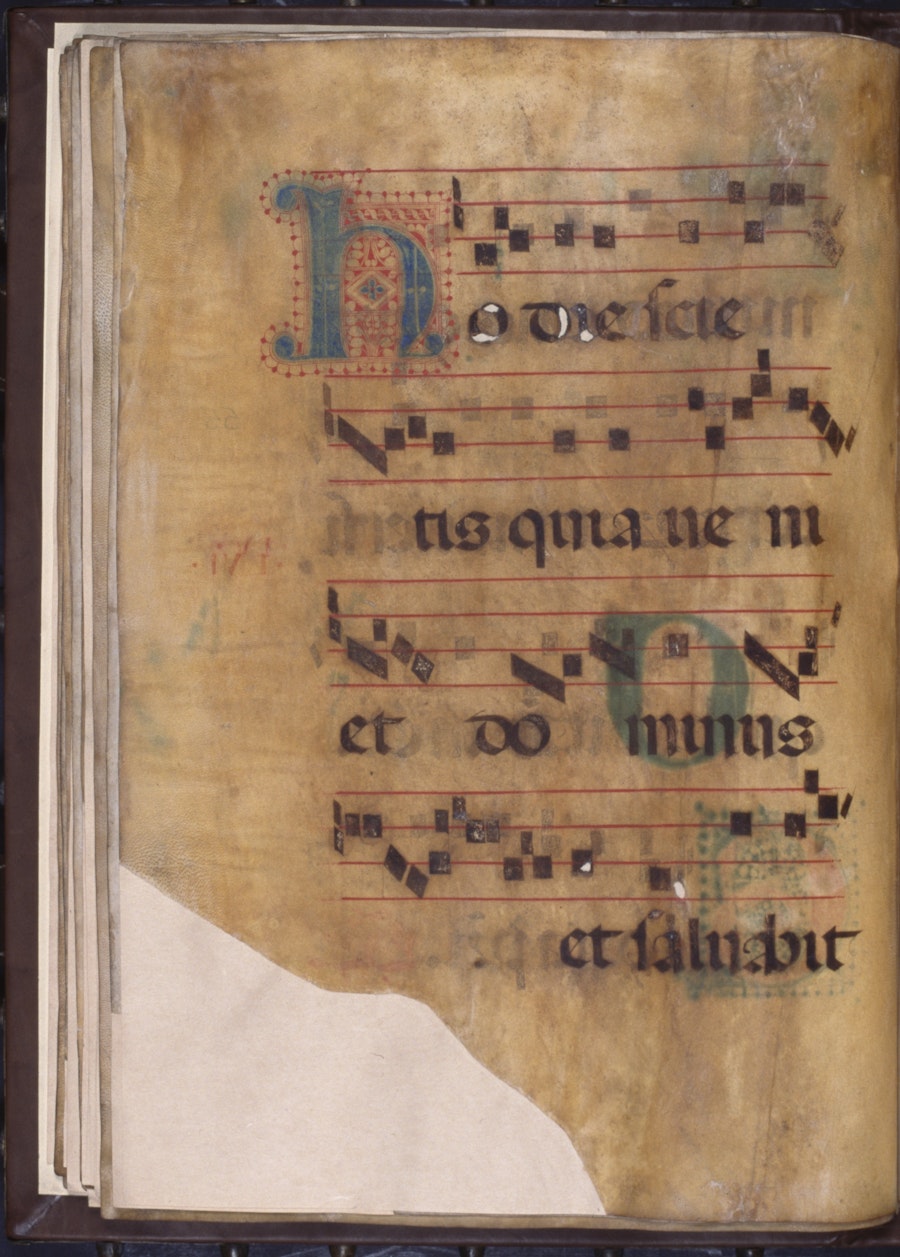 Hodie scie
tis quia ue ni
et do minus
et saluabit